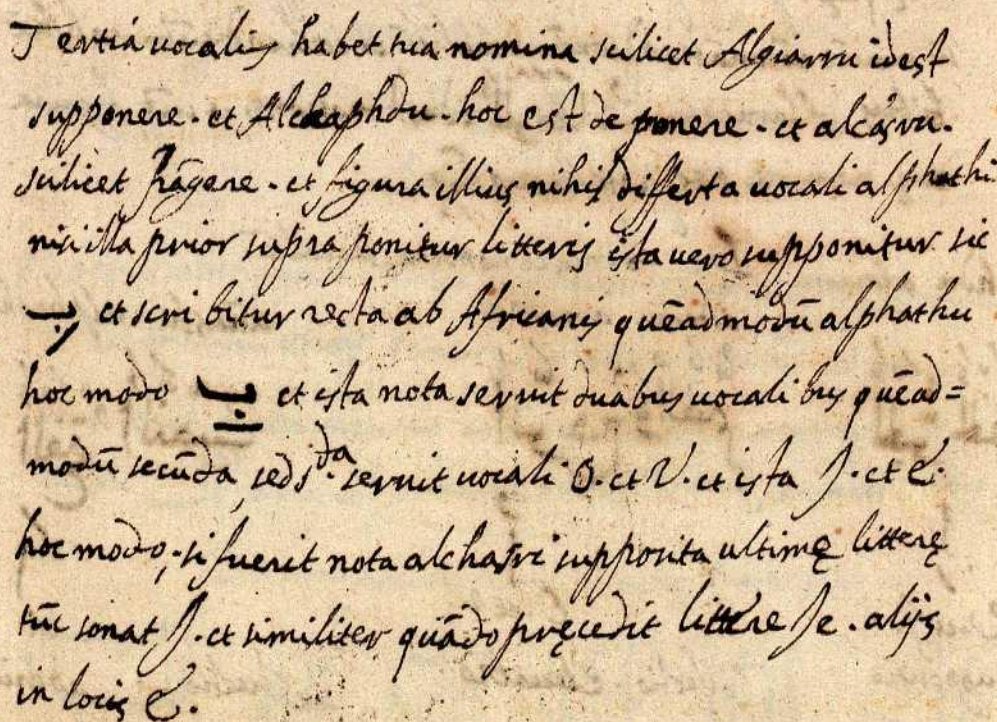 Tertia uocalis habet tria nomina scilicet Algiarru idest
supponere. et Alchaphdu. hoc est de ponere. et alcasru.
scilicet frāgere. et figura illius nihil differt a uocali alphathi
nisi illa prior supra ponitur litteris ista uero supponitur sic
بِ et scribitur recta ab Africanis quēadmodū alphathu
hoc modo بِ et ista nota seruit duabus uocalibus quēad=
modū secūda, sed s.da seruit uocali O. et V. et ista J. et E.
hoc modo, si fuerit nota alchasri supposita ultimę litterę
tūc sonat J. et similiter quādo pręcedit littere Je. alijs
in locis E.